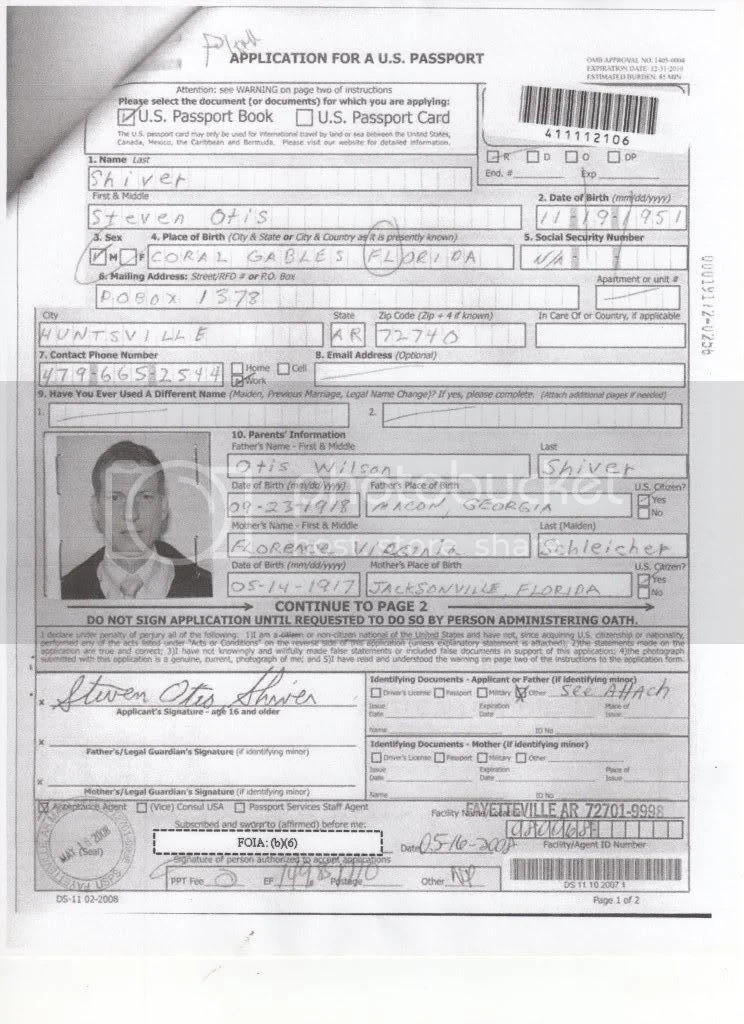 APPLICATION FOR A U.S. PASSPORT
OMB APPROVAL NO. 1405-0004
EXPIRATION DATE: 12-31-2010
ESTIMATED BURDEN: 85 MIN
Attention: see WARNING on page two of instructions
Please select the document (or documents) for which you are applying:
U.S. Passport Book U.S. Passport Card
The U.S. passport card may only be used for international travel by land or sea between the United States,
Canada, Mexico, the Caribbean and Bermuda. Please visit our website for detailed information.
411112106
R D O DP
End. # Exp
1. Name Last
Shiver
First & Middle
Steven Otis
2. Date of Birth (mm/dd/yyyy)
11-19-1951
3. Sex 4. Place of Birth (City & State or City & Country as it is presently known) 5. Social Security Number
M F CORAL GABLES FLORIDA N/A
6. Mailing Address: Street/RFD # or P.O. Box Apartment or unit #
POBOX 1378
City State Zip Code (Zip + 4 if known) In Care Of or Country, if applicable
HUNTSVILLE AR 72740
7. Contact Phone Number 8. Email Address (Optional)
479-665-2544 Home Cell
Work
9. Have You Ever Used A Different Name (Maiden, Previous Marriage, Legal Name Change)? If yes, please complete. (Attach additional pages if needed)
1. 2.
10. Parents' Information
Father's Name - First & Middle Last
Otis Wilson Shiver
Date of Birth (mm/dd/yyyy) Father's Place of Birth U.S. Citizen?
09-23-1918 MACON, GEORGIA Yes
No
Mother's Name - First & Middle Last (Maiden)
FLORENCE VIRGINIA Schleicher
Date of Birth (mm/dd/yyyy) Mother's Place of Birth U.S. Citizen?
05-14-1917 JACKSONVILLE FLORIDA Yes
No
photobucket
CONTINUE TO PAGE 2
DO NOT SIGN APPLICATION UNTIL REQUESTED TO DO SO BY PERSON ADMINISTERING OATH.
I declare under penalty of perjury all of the following: 1)I am a citizen or non-citizen national of the United States and have not, since acquiring U.S. citizenship or nationality,
performed any of the acts listed under "Acts or Conditions" on the reverse side of this application (unless explanatory statement is attached); 2)the statements made on the
application are true and correct; 3)I have not knowingly and willfully made false statements or included false documents in support of this application; 4)the photograph
submitted with this application is a genuine, current, photograph of me; and 5)I have read and understood the warning on page two of the instructions to the application form.
x Steven Otis Shiver
Applicant's Signature - age 16 and older
x
Father's/Legal Guardian's Signature (if identifying minor)
x
Mother's/Legal Guardian's Signature (if identifying minor)
Identifying Documents - Applicant or Father (if identifying minor)
Driver's License Passport Military Other See Attach
Issue Date Expiration Date Place of Issue
Name ID No
Identifying Documents - Mother (if identifying minor)
Driver's License Passport Military Other
Issue Date Expiration Date Place of Issue
Name ID No
Acceptance Agent (Vice) Consul USA Passport Services Staff Agent
Subscribed and sworn to (affirmed) before me:
(Seal)
FOIA: (b)(6)
Date 05-16-2008
Signature of person authorized to accept applications
Facility Name/Location
FAYETTEVILLE AR 72701-9998
Facility/Agent ID Number
PPT Fee EF Postage Other
DS 11 10 2007 1
DS-11 02-2008 Page 1 of 2